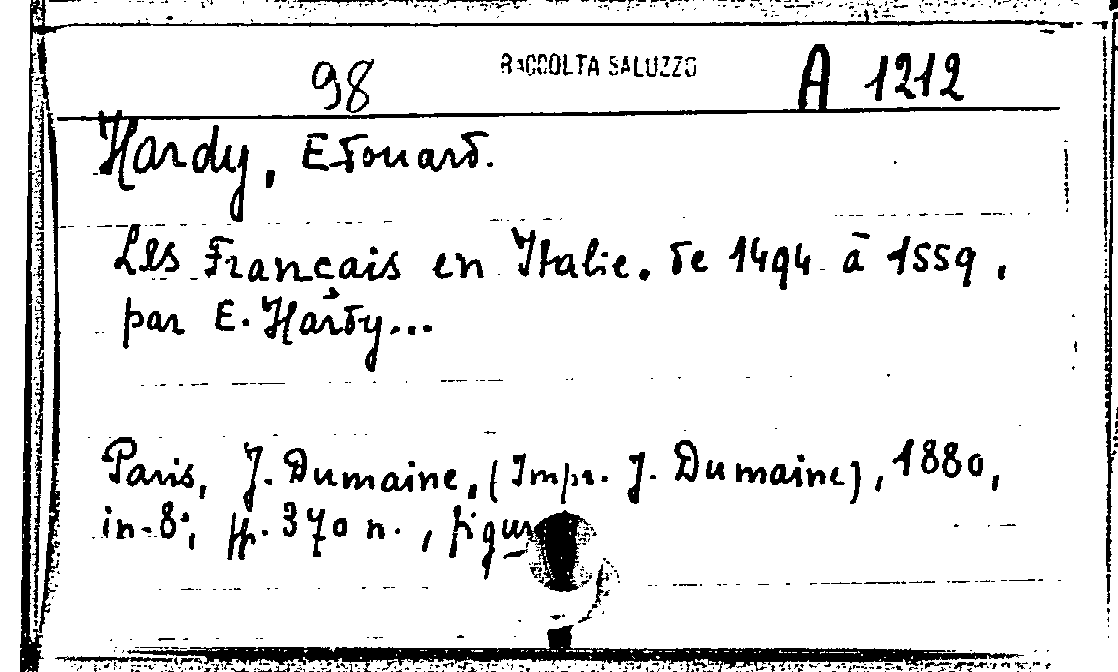 98 RACCOLTA SALUZZO A 1212
Hardy, Edouard.
Les Français en Italie. de 1494 à 1559,
par E. Hardy...
Paris, J. Dumaine, (Impr. J. Dumaine), 1880,
in-8°, pp. 370 n.,